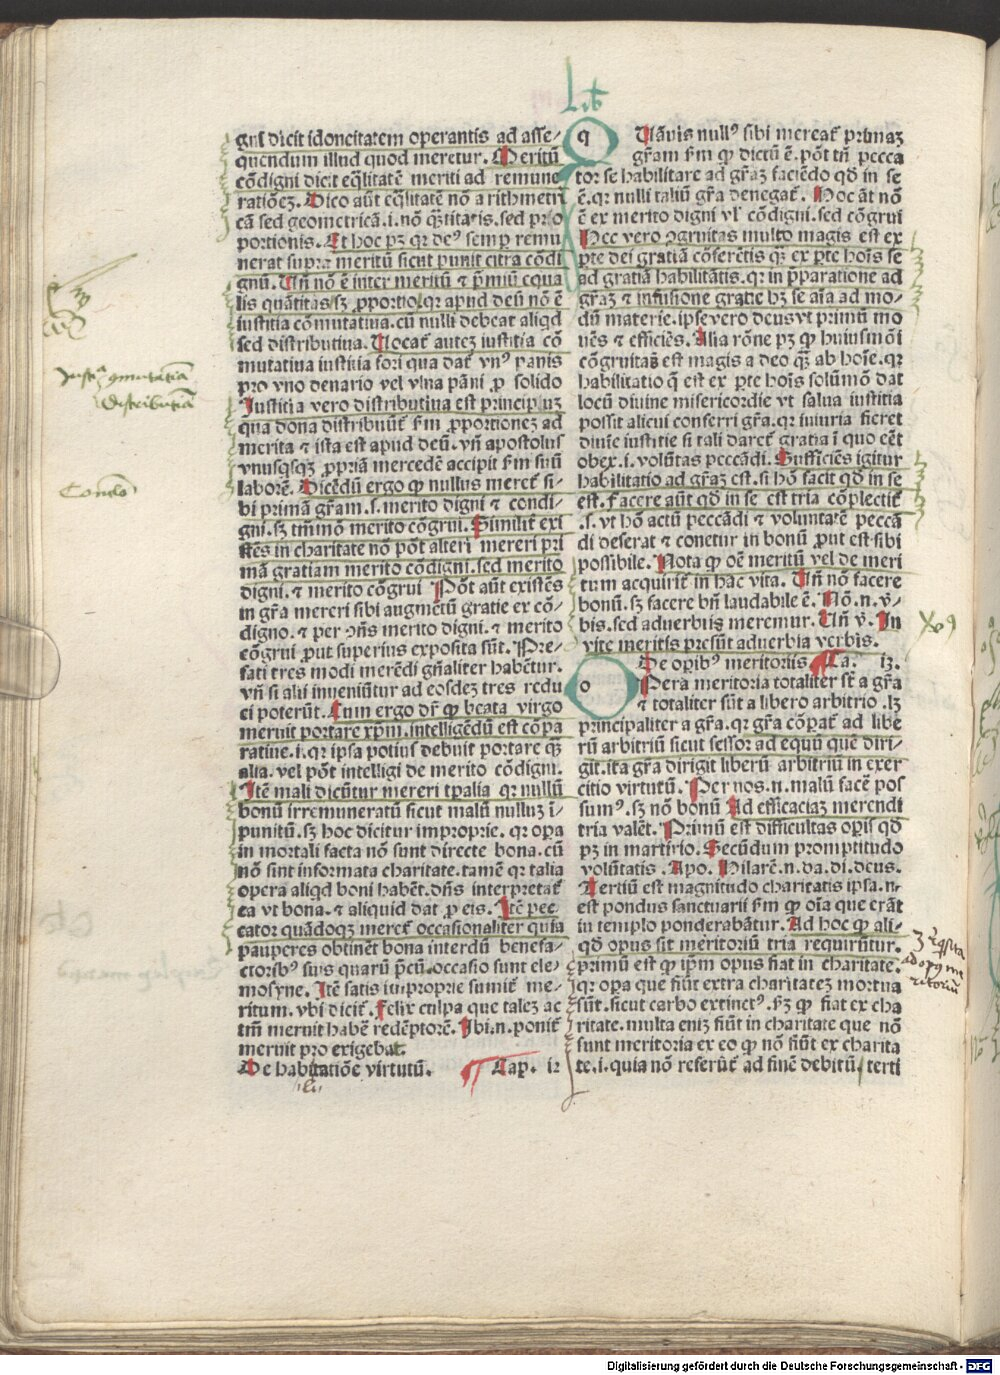 Lib
gnũ dicit idoneitatem operantis ad asse/
quendum illud quod meretur. Meritũ
cõdigni dicit eq̃litatẽ meriti ad remune
rationẽ. Dico aũt eq̃litatẽ nõ arithmetri
cã sed geometricã.i. nõ q̃titatis. sed pro
portionis. Et hoc pꝫ qꝛ deꝰ semp̱ remu
nerat supra meritũ sicut punit citra cõdi
gnũ. Uñ nõ ẽ inter meritũ ⁊ p̃miũ equa
lis quãtitas/sꝫ ꝓportio/qꝛ apud deũ nõ ẽ
iustitia cõmutatiua. cũ nulli debeat aliqd
sed distributiua. Uocat᷑ autez iustitia cõ
mutatiua iustitia fori qua dat᷑ vnꝰ panis
pro vno denario vel vlna pãni ꝓ solido
Iustitia vero distributiua est principuz
qua dona distribuũt᷑ ẜm ꝓportionez ad
merita ⁊ ista est apud deũ. vñ apostolus
vnusqsqꝫ ꝓpriã mercedẽ accipit ẜm suũ
laborẽ. Dicẽdũ ergo ꝙ nullus meret᷑ si-
bi primã gr̃am .s. merito digni ⁊ condi-
gni. sꝫ tm̃mõ merito cõgrui. Similit᷑ exi
stẽs in charitate nõ põt alteri mereri pri
mã gratiam merito cõdigni. sed merito
digni. ⁊ merito cõgrui Põt aũt existẽs
in gr̃a mereri sibi augmẽtũ gratie ex cõ-
digno. ⁊ per ꝯñs merito digni. ⁊ merito
cõgrui ꝓut superius exposita sũt. Pre-
fati tres modi merẽdi gñaliter habẽtur.
vñ si alii inueniũtur ad eosdez tres redu
ci poterũt. Cum ergo dr̃ ꝙ beata virgo
meruit portare xp̃m. intelligẽdũ est cõpa
ratiue.i. qꝛ ipsa potius debuit portare q̃
alia. vel põt intelligi de merito cõdigni.
Itẽ mali dicũtur mereri tp̃alia qꝛ nullũ
bonũ irremuneratũ sicut malũ nulluꝫ ĩ-
punitũ. sꝫ hoc dicitur improprie. qꝛ oꝑa
in mortali facta nõ sunt directe bona. cũ
nõ sint informata charitate. tamẽ qꝛ talia
opera aliqd boni habẽt. dñs interpretat᷑
ea vt bona. ⁊ aliquid dat ꝓ eis. Itẽ pec
cator quãdoqꝫ meret᷑ occasionaliter quia
pauperes obtinẽt bona interdũ benefa-
ctoribꝰ suis quarũ p̃cũ occasio sunt ele-
mosyne. Itẽ satis improprie sumit᷑ me-
ritum. vbi dicit᷑. Felix culpa que talez ac
tm̃ meruit habẽ redẽptorẽ. Ibi .n. ponit᷑
meruit pro exigebat.
De habitatiõe virtutũ. Cap. 12
q Uãuis nullꝰ sibi mereat᷑ primaꝫ
gr̃am ẜm ꝙ dictũ ẽ. põt tñ pecca
tor se habilitare ad gr̃aꝫ faciẽdo qd̃ in se
ẽ. qꝛ nulli taliũ gr̃a denegat᷑. Hoc ãt nõ
ẽ ex merito digni vl᷑ cõdigni. sed cõgrui
Hec vero ꝯgruitas multo magis est ex
ꝑte dei gratiã cõferẽtis q̃ ex ꝑte hoĩs se
ad gratiã habilitãtis. qꝛ in p̃paratione ad
gr̃aꝫ ⁊ infusione gratie hꝫ se aĩa ad mo/
dũ materie. ipse vero deus vt primũ mo
uẽs ⁊ efficiẽs. Alia rõne pꝫ ꝙ huiusmõi
cõgruitas est magis a deo q̃ ab hoĩe. qꝛ
habilitatio q̃ est ex ꝑte hoĩs solũmõ dat
locũ diuine misericordie vt salua iustitia
possit alicui conferri gr̃a. qꝛ iniuria fieret
diuĩe iustitie si tali daret᷑ gratia ĩ quo eẽt
obex .i. volũtas peccãdi. Sufficiẽs igitur
habilitatio ad gr̃aꝫ est. si hõ facit qd̃ in se
est. facere aũt qd̃ in se est tria cõplectit᷑
.s. vt hõ actũ peccãdi ⁊ voluntatẽ pecca
di deserat ⁊ conetur in bonũ ꝓut est sibi
possibile. Nota ꝙ oẽ meritũ vel de meri
tum acquirit᷑ in hac vita. Uñ nõ facere
bonũ. sꝫ facere bñ laudabile ẽ. Nõ .n. v̾-
bis. sed aduerbiis meremur. Uñ v̾. In
vite meritis presũt aduerbia verbis.
De oꝑibꝰ meritoriis Ca. 13.
o Pera meritoria totaliter sũt a gr̃a
⁊ totaliter sũt a libero arbitrio. lꝫ
principaliter a gr̃a. qꝛ gr̃a cõparat᷑ ad libe
rũ arbitriũ sicut sessor ad equũ quẽ diri/
git. ita gr̃a dirigit liberũ arbitriũ in exer
citio virtutũ. Per nos .n. malũ facẽ pos
sumꝰ. sꝫ nõ bonũ Ad efficaciaꝫ merendi
tria valẽt. Primũ est difficultas oꝑis qd̃
pꝫ in martirio. Secũdum promptitudo
volũtatis. Apo. Hilarẽ .n. da. di. deus.
Tertiũ est magnitudo charitatis ipsa .n.
est pondus sanctuarii ẜm ꝙ oĩa que erãt
in templo ponderabãtur. Ad hoc ꝙ ali-
qd̃ opus sit meritoriũ tria requirũtur.
primũ est ꝙ ip̃m opus fiat in charitate.
qꝛ oꝑa que fiũt extra charitatez mortua
sũt. sicut carbo extinctꝰ. ẜꝫ ꝙ fiat ex cha
ritate. multa eniꝫ fiũt in charitate que nõ
sunt meritoria ex eo ꝙ nõ fiũt ex charita
te .i. quia nõ referũt᷑ ad finẽ debitũ. terti
Iustitia ꝯmutatiua
distributiua
3 reqrũ
ad opꝰ me
ritoriũ
Digitalisierung gefördert durch die Deutsche Forschungsgemeinschaft - DFG